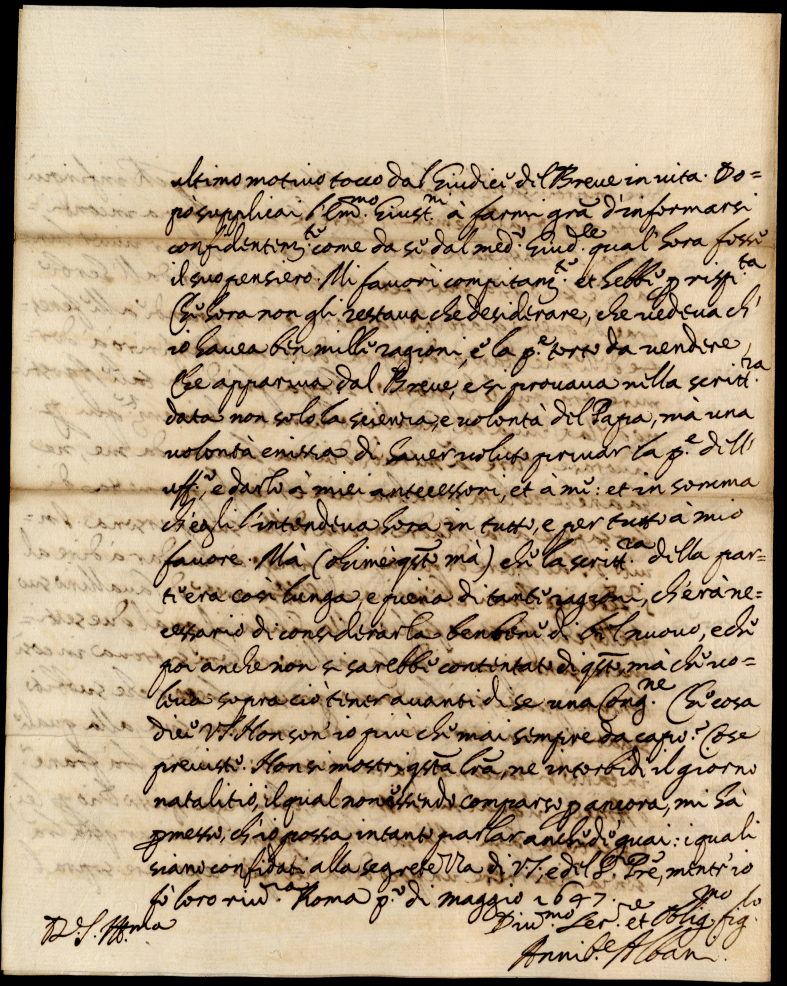 ultimo motivo tocco dal Giudice del Breve in vita. Do=
pò supplicai l'Emmo. Giustni à farmi gra d'informarsi
confidentemte. come da se dal medo. Giudce. qual' hora fosse
il suo pensiero. Mi favorì compitamte. et hebbe p rispta.
Che hora non gli restava che desiderare, che vedeva ch'
io havea ben mille ragioni, e la pte. torto da vendere,
Che appariva dal Breve, e si provava nella scrittra.
data non solo la scienza, e volontà del Papa, mà una
volontà enissa di haver voluto privar la pte. dell'
uffo., e darlo à miei antecessori, et à me: et in somma
ch'egli l'intendeva hora in tutto, e per tutto à mio
favore. Mà (ohime qsto mà) che la scrittra. della par=
te era così lunga, e piena di tante ragioni, ch'era ne=
cessario di considerarla ben bene di bel nuovo, e che
poi anche non si sarebbe contentato di qsto, mà che vo=
leva sopra ciò tener avanti di se una Congne. Che cosa
dice VS. Non son' io più che mai sempre da capo? Cose
previste. Non si mostri qsta lra, ne intorbidi il giorno
natalitio, il qual non essendo comparso p ancora, mi hà
pmesso, ch'io possa intanto parlar anche di guai: i quali
siano confidati alla segretezza di VS., e del Sr. Pre, mentr'io
fò loro riva. Roma po. di maggio 1697.
D. S. Illma
Divmo. Serre. et Obligmo figlo.
Annibe. Albani.